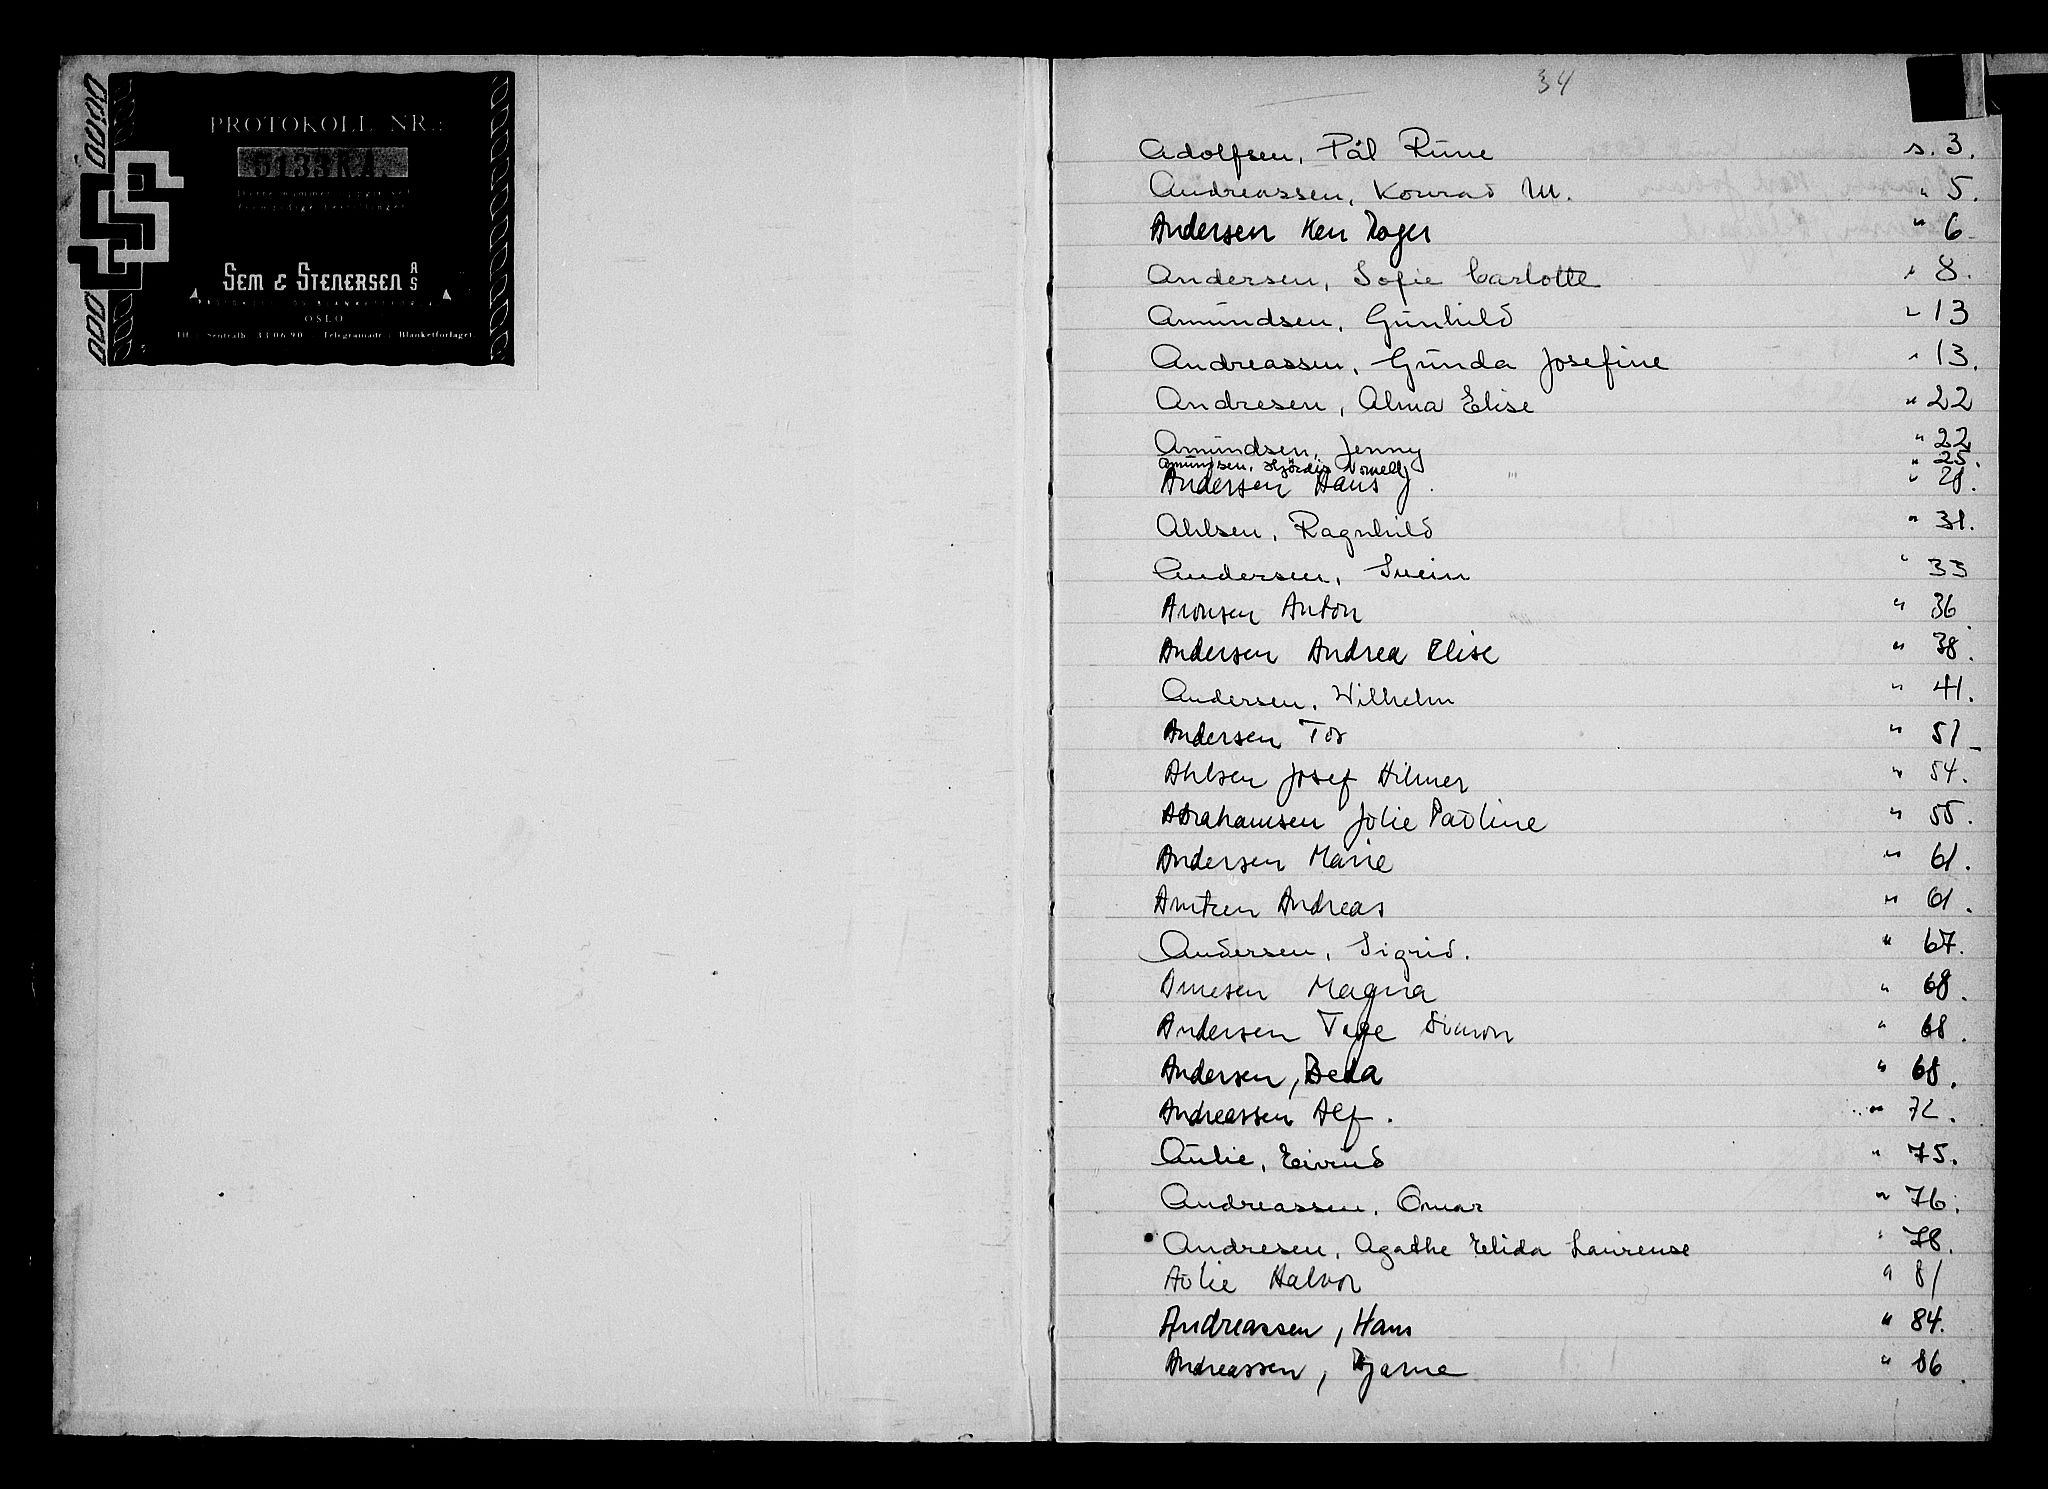 PROTOKOLL NR.:
SEM & STENERSEN A/S
OSLO
Tlf. Sentralb. 33 06 90 - Telegramadr.: Blanketforlaget
34
Adolfsen, Pål Rune s. 3.
Andreassen, Konrad M. " 5.
Andersen Ken Roger " 6
Andersen, Sofie Carlotte " 8.
Amundsen, Gunhild " 13
Andreassen, Gunda Josefine " 13.
Andresen, Alma Elise " 22
Amundsen, Jenny " 22
Amundsen, Hjördis " 25.
Andersen Hans J. " 28.
Ahlsen, Ragnhild " 31.
Andersen, Svein " 33
Aronsen Anton " 36
Andersen Andrea Elise " 38.
Andersen, Wilhelm " 41.
Andersen Tor " 51
Ahlsen Josef Hilmer " 54.
Abrahamsen Julie Pauline " 55.
Andersen Marie " 61.
Arntzen Andreas " 61.
Andersen, Sigrid. " 67.
Magna " 68.
Andersen Tage Simon " 68.
Andersen, Beda " 68.
Andreassen Alf. " 72.
Aulie, Eivind " 75.
Andreassen, Omar " 76.
Andresen, Agathe Elida Laurense " 78.
Aulie Halvor " 81
Andreassen, Hans " 84.
Andreassen, Bjarne " 86.